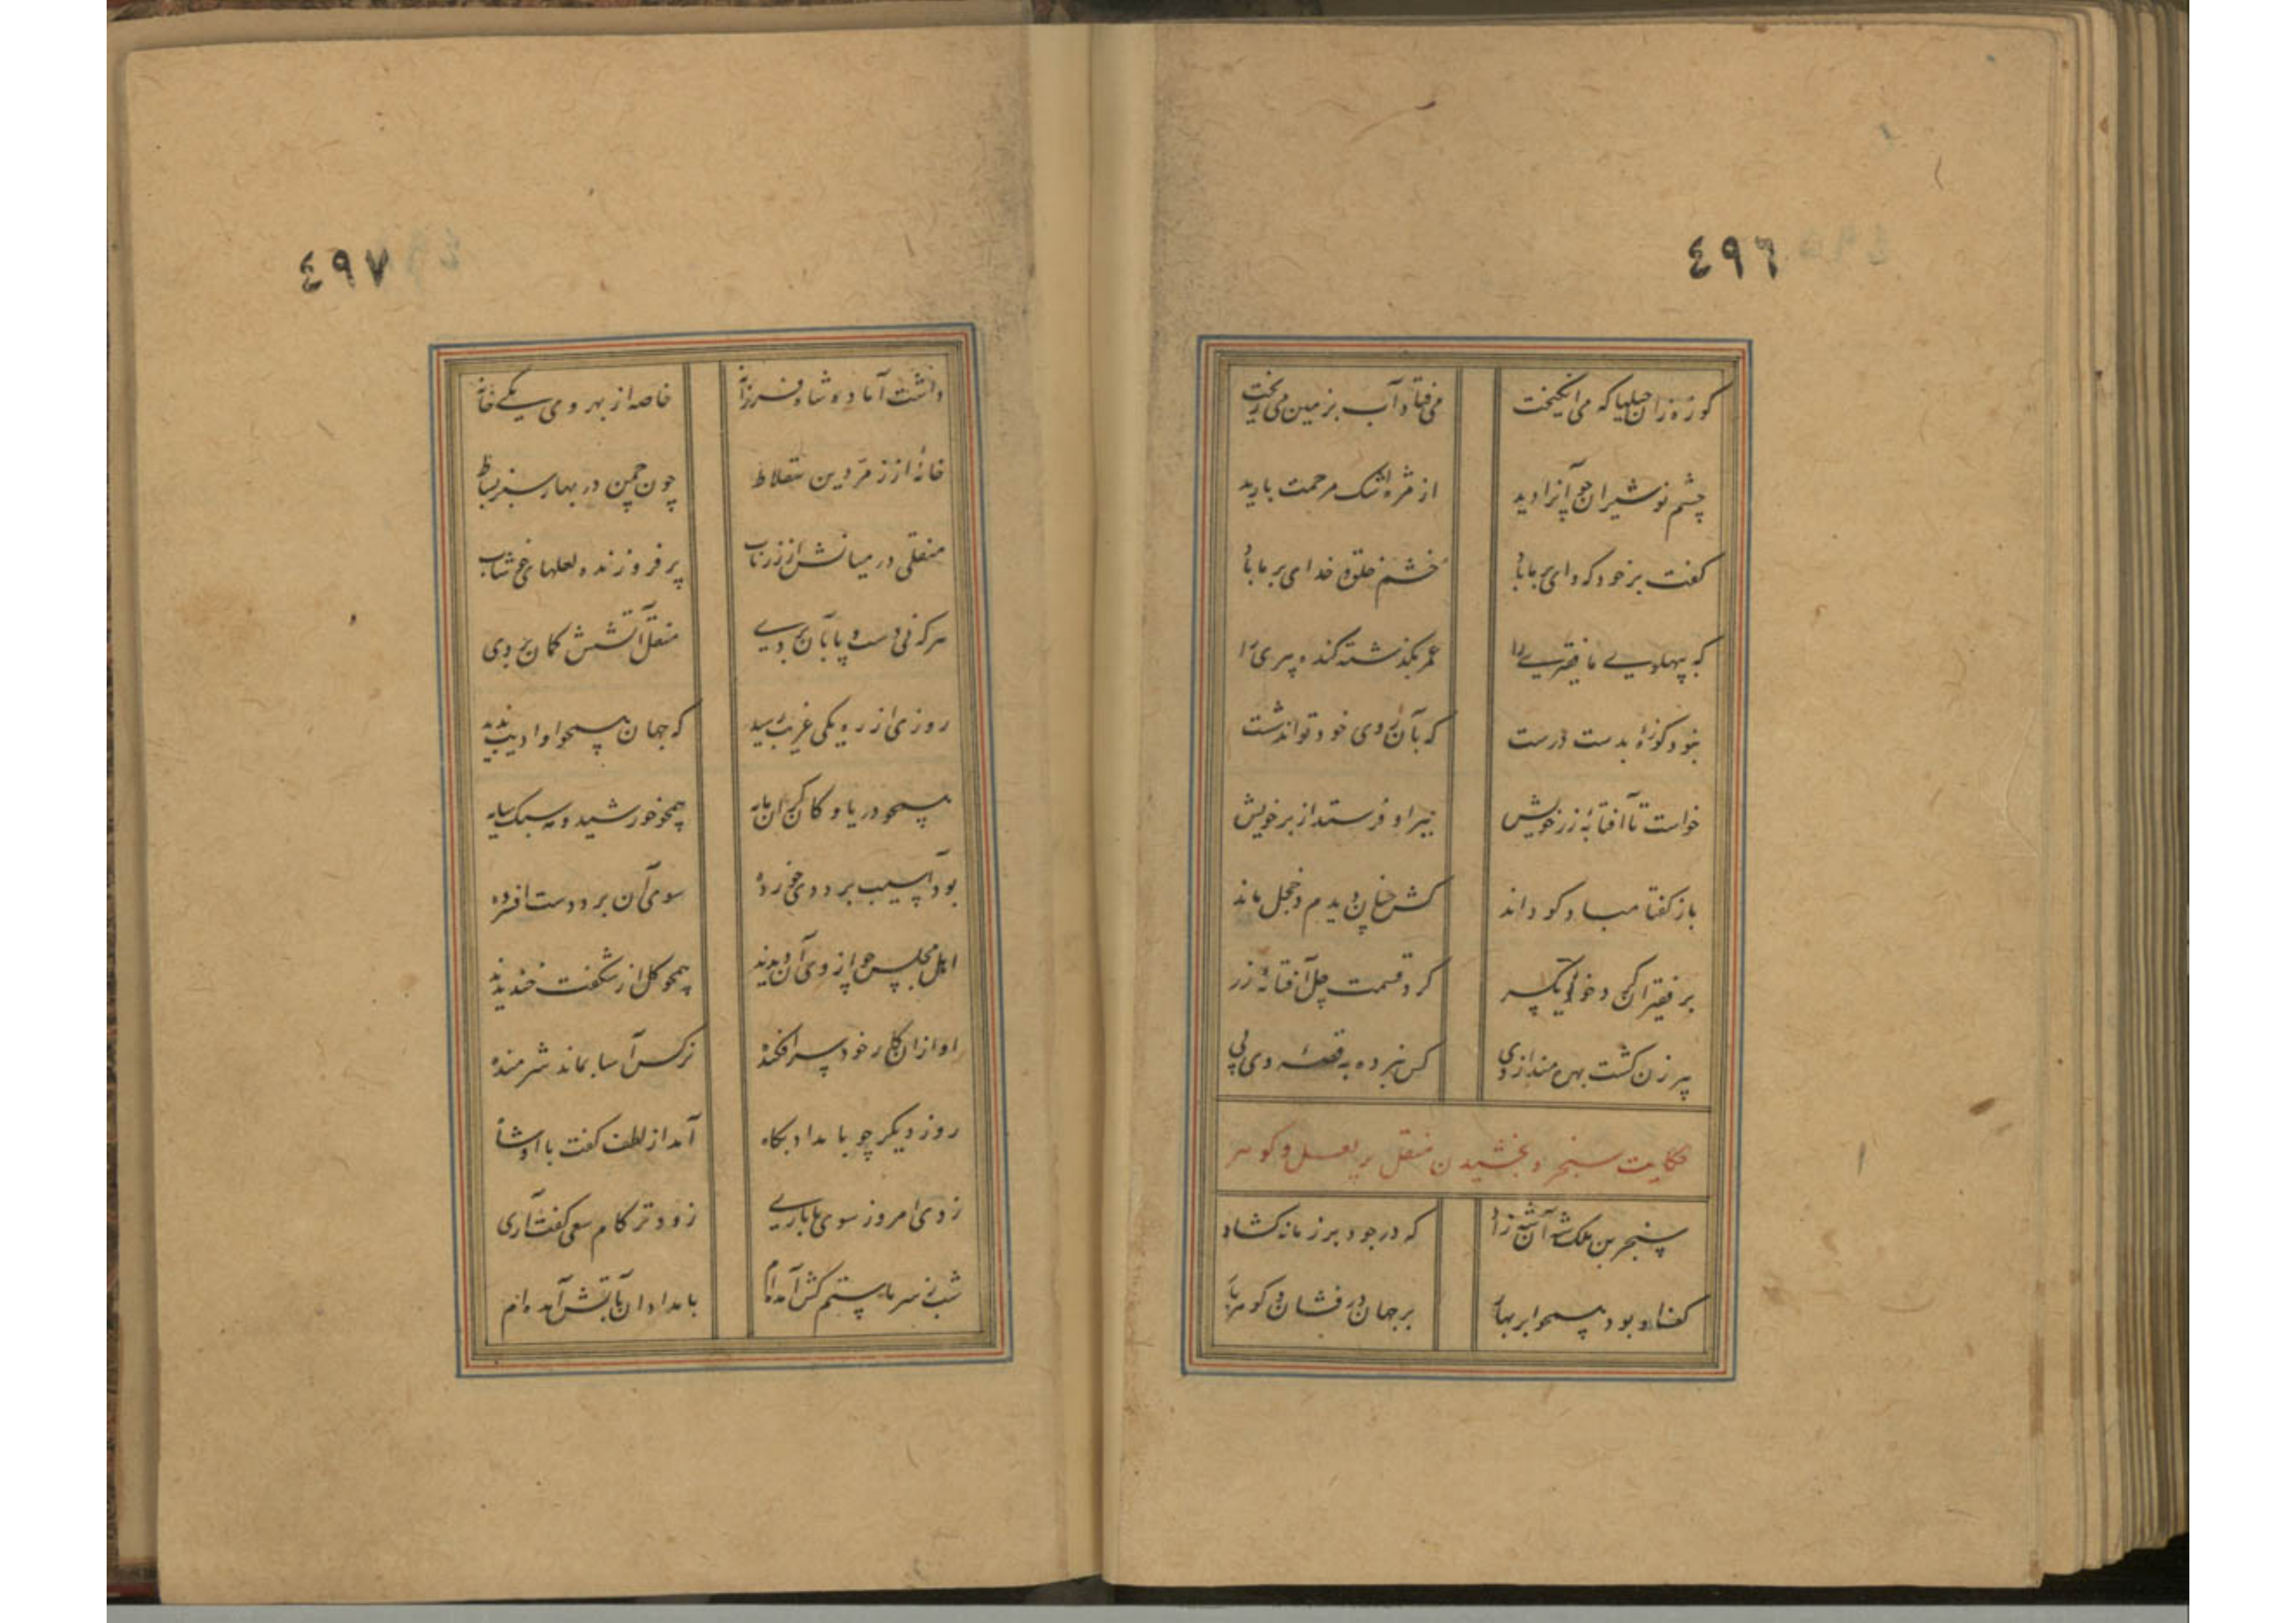 ٤٩٦
کوزه زان حیلها که می انگیخت
می فتاد آب بر زمین می ریخت
چشم نوشیروان چو آنرا دید
از مژه اشک مرحمت بارید
کفت بر خود که وای بر ما باد
خشم خلق و خدای بر ما باد
که به پهلوی ما فقیری را
عمر بگذشته کنده پیری را
نبود کوزهٔ بدست درست
که بآن روی خود تواند شست
خواست تا آفتابهٔ زر خویش
پیر او فرستد از بر خویش
باز کفتا مباد کو داند
کش چنان دیدم و خجل ماند
بر فقیران کرد خوالی یکسر
کرد قسمت چل آفتابهٔ زر
پیر زن کشت بهره مند از وی
کس نبرده به قصهٔ وی پی
حکایت سنجر و بخشیدن منقل پر لعل و کوهر
سنجر بن ملکشه آن شه راد
که در جود بر زمانه کشاد
کف او بود همچو ابر بهار
بر جهان در فشان و کوهر بار
٤٩٧
داشت آماده شاه فرزانه
خاصه از بهر وی یکی خانه
خانهٔ از زمردین سقلاط
چون چمن در بهار سبز بساط
منقلی در میانش از زر ناب
پر فروزنده لعلهای خوشاب
هر که نی دست و پا بآن بردی
منقل آتشش کمان بردی
روزی از ره یکی غریب رسید
که جهان همچو او ادیب ندید
همچو دریا و کان کران مایه
همچو خورشید و مه سبک سایه
بود آسیب برد دی خورده
سوی آن برد دست افسرده
اهل مجلس چو از وی آن دیدند
همچو کل از شکفت خندیدند
او از آن کار خود سرافکنده
نرکس آسا بماند شرمنده
روز دیکر چو بامداد بکاه
آمد از لطف کفت با او شاه
ز وی امروز سوی ما باری
زودتر کام سعی کفت آری
شب ز سرما ستم کش آمده ام
بامدادان بآتش آمده ام